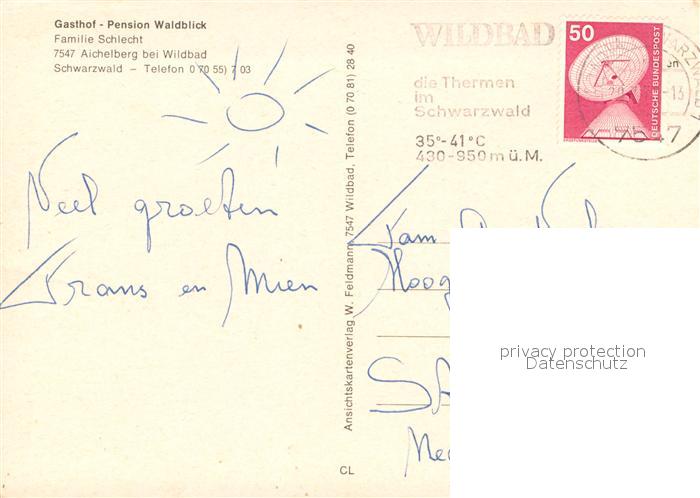 Gasthof - Pension Waldblick
Familie Schlecht
7547 Aichelberg bei Wildbad
Schwarzwald – Telefon (0 70 55) 7 03
WILDBAD
die Thermen
im
Schwarzwald
35°-41°C
430-950 m ü.M.
50
DEUTSCHE BUNDESPOST
7547
Veel groeten
Frans en Mien
Ansichtskartenverlag W. Feldmann, 7547 Wildbad, Telefon (0 70 81) 28 40
Fam
Hoog
privacy protection
Datenschutz
CL